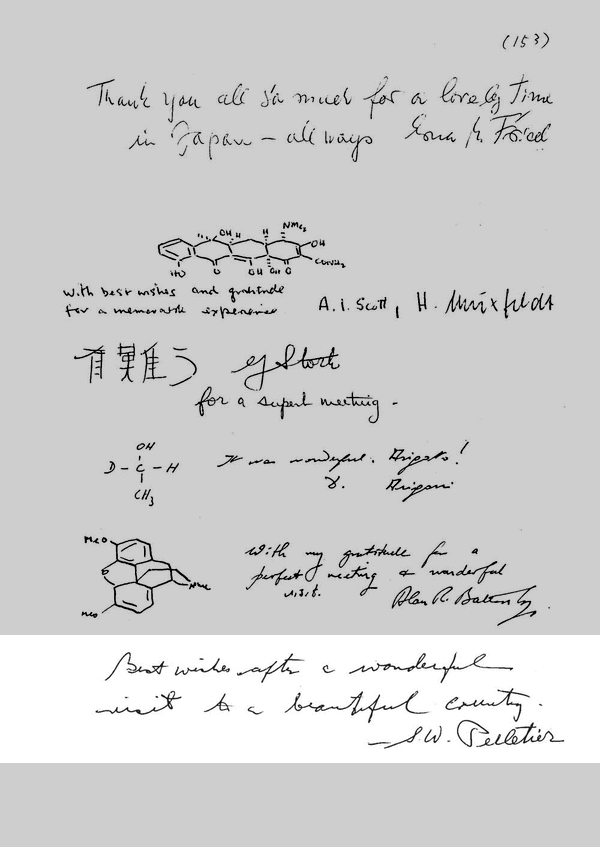 (153)
Thank you all so much for a lovely time
in Japan — always
OH H H NMe2 OH
HO O OH OH O CONH2
with best wishes and gratitude
for a memorable experience A. I. Scott, H. Muxfeldt
有難う G Stork
for a superb meeting -
OH
D - C - H
CH3
It was wonderful. Arigato!
D. Arigoni
MeO
O
NMe
MeO
With my gratitude for a
perfect meeting & wonderful
visit. Alan R. Battersby.
Best wishes after a wonderful
visit to a beautiful country.
— S W. Pelletier